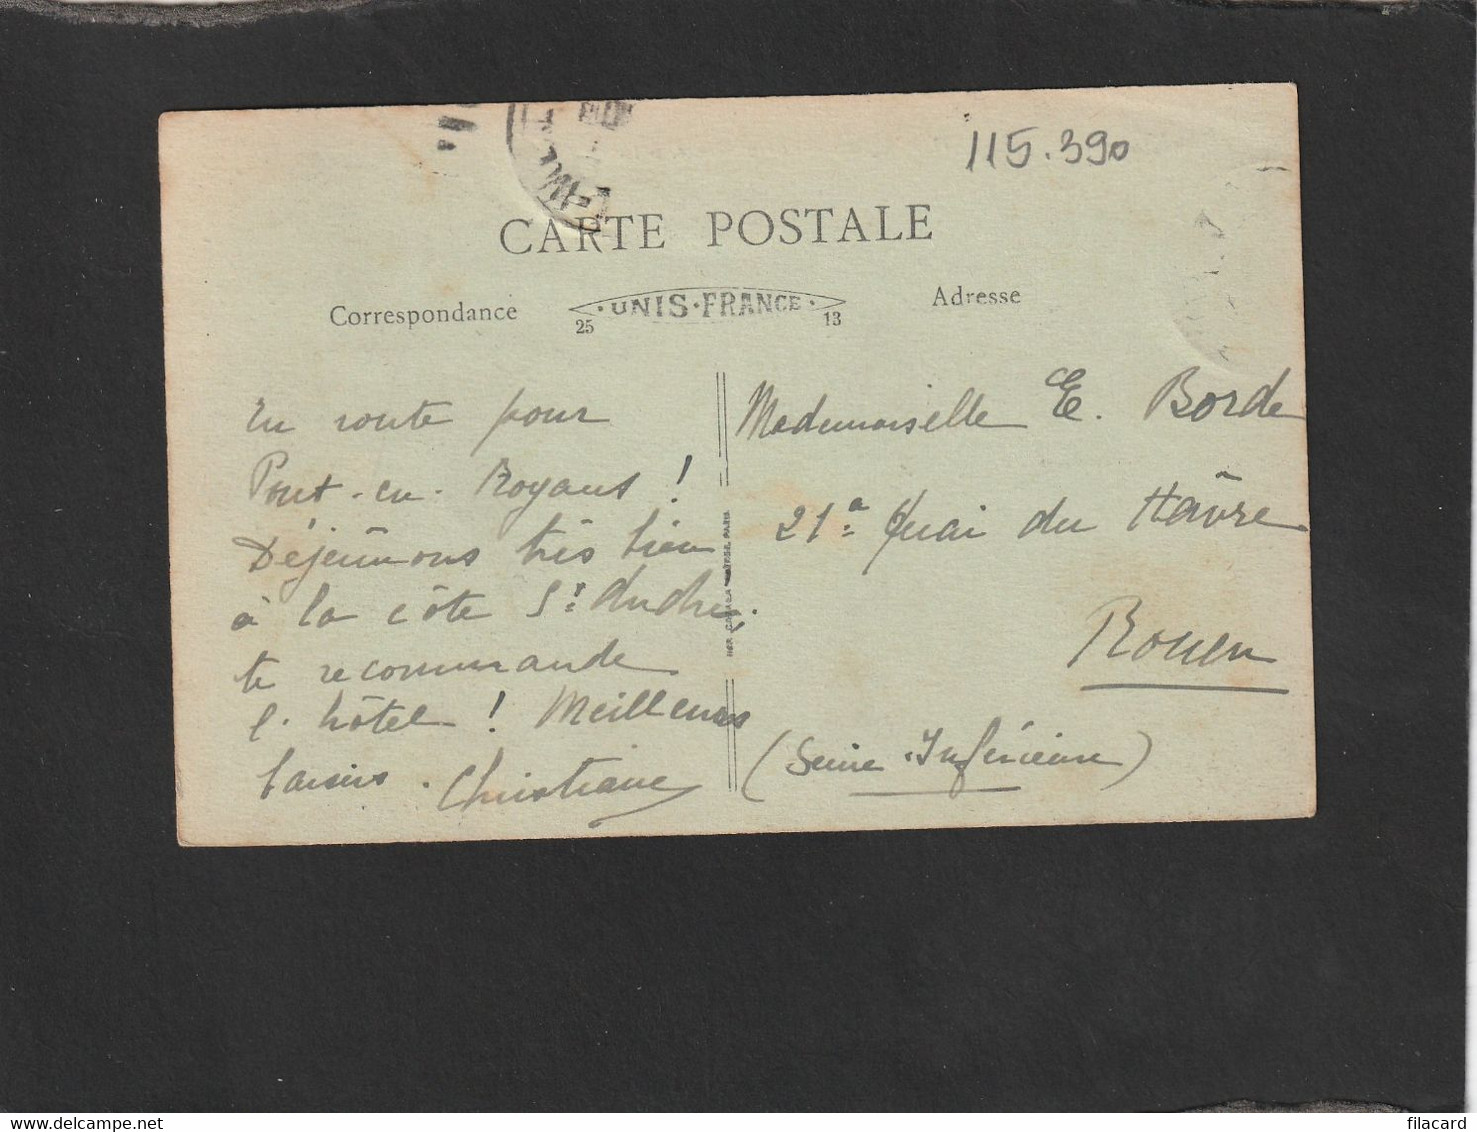 115.390
CARTE POSTALE
Correspondance
· UNIS · FRANCE ·
25 13
Adresse
En route pour
Pont-en-Royans !
Déjeûnons très bien
à la côte St André,
te recommande
l'hôtel ! Meilleurs
baisers. Christiane
Mademoiselle E. Borde
21a Quai du Hâvre
Rouen
(Seine-Inférieure)
filacard.com